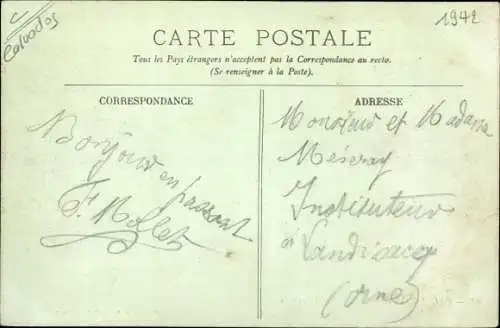 Calvados
1942
CARTE POSTALE
Tous les Pays étrangers n'acceptent pas la Correspondance au recto.
(Se renseigner à la Poste).
CORRESPONDANCE
Bonjour en passant
F. Mollet
ADRESSE
Monsieur et Madame
Mézeray
Instituteur
à Landisacq
(Orne)